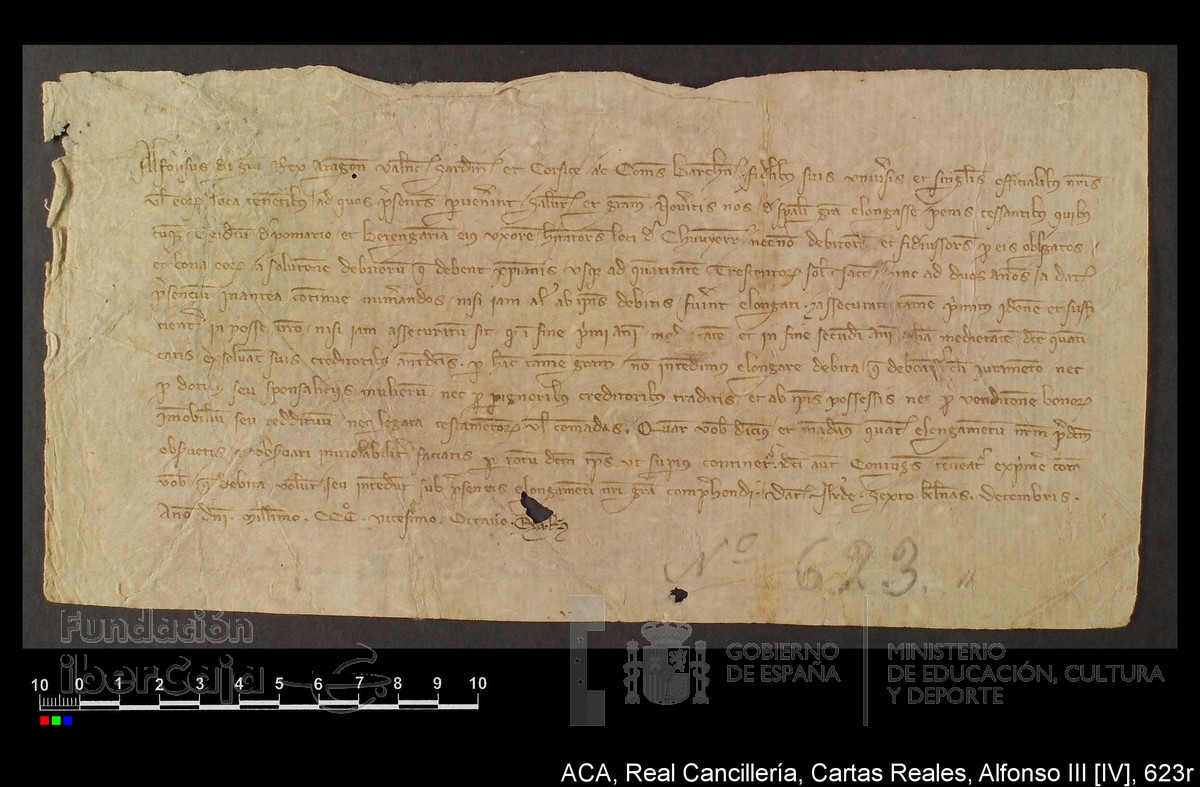 Alfonsus di gra Rex Aragon Valenc Sardin et Corsice ac Comes Barchn fidelibus suis universis et singlis officialibus nris
vl eorum loca tenentibus ad quos presentes pervenerint Salut et gram Noveritis nos de spali gra elongasse penis cessantibus quibus
cumque Egidium de pomario et Berengariam eius uxorem loci de necnon debitores et fideiussores p eis obligatos
et bona eorum a solutione debitorum que debent xpianis usque ad quantitatem Trescentorum sol Jacc hinc ad duos annos a dat
presencium inantea continue numerandos nisi iam al ab ipsis debitis fuerint elongati assecurate tamen primitus idonee et suffi
cient in posse vro nisi iam assecuratum sit qd in fine primi anni et in fine secundi anni aliam medietatem dce quanti
tatis exsolvant suis creditoribus antedictis. p hanc tamen gram non intendimus elongare debita que debeantur cum iuramento nec
p dotibus seu sponsaliciis mulierum nec p pignoribus creditoribus traditis et ab ipsis possessis nec p venditione bonorum
imobilium seu reddituum nec legata testamentorum vl comandas. Quare vob dicimus et mandamus quat elongamentum nrm predcm
observetis et observari inviolabiliter faciatis p totum dcm tps ut superius continetur. dci aut coniuges teneantur exprimere coram
vob que debita volunt seu intendunt sub presentis elongamenti nri gra comprehendi. Dat Ilerde. Sexto. klendas. Decembris.
Anno dni. Millesimo. CCC. vicesimo. Octavo.
Nº 623.
Fundación
iberCaja
GOBIERNO
DE ESPAÑA
MINISTERIO
DE EDUCACIÓN, CULTURA
Y DEPORTE
10 0 1 2 3 4 5 6 7 8 9 10
ACA, Real Cancillería, Cartas Reales, Alfonso III [IV], 623r